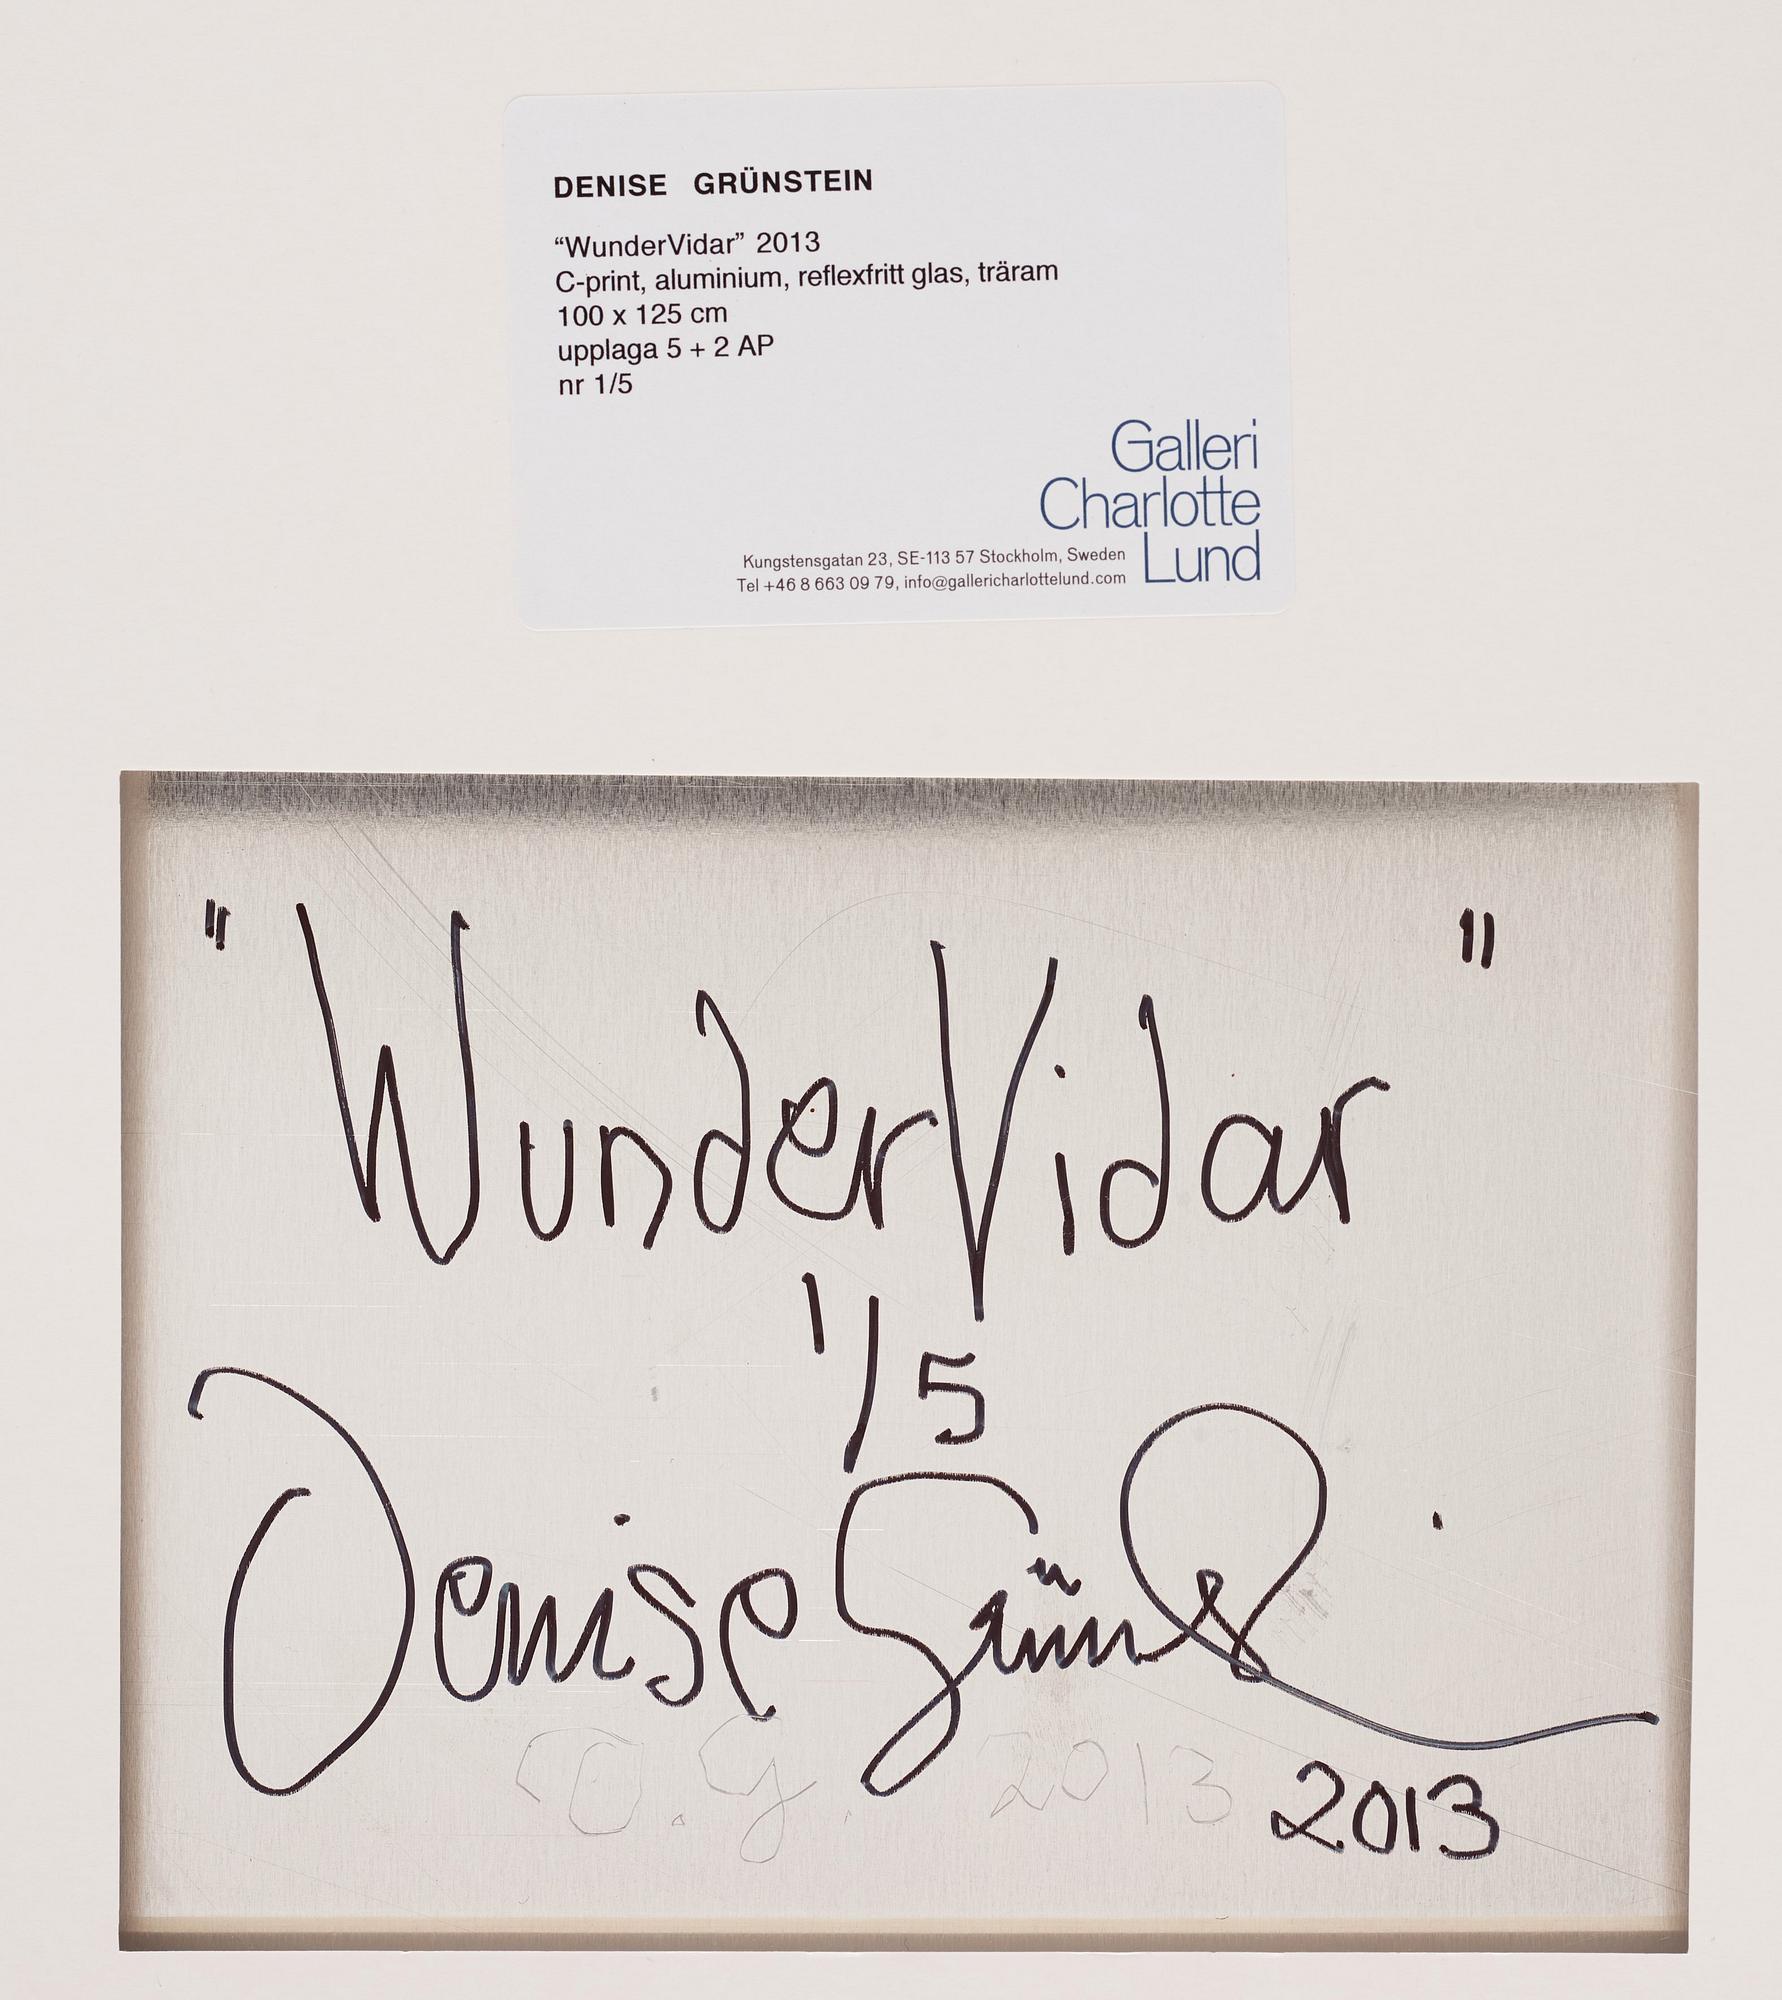 DENISE GRÜNSTEIN
“WunderVidar” 2013
C-print, aluminium, reflexfritt glas, träram
100 x 125 cm
upplaga 5 + 2 AP
nr 1/5
Galleri
Charlotte
Lund
Kungstensgatan 23, SE-113 57 Stockholm, Sweden
Tel +46 8 663 09 79, info@gallericharlottelund.com
"WunderVidar"
1/5
Denise Grünstein
D.G. 2013
2013